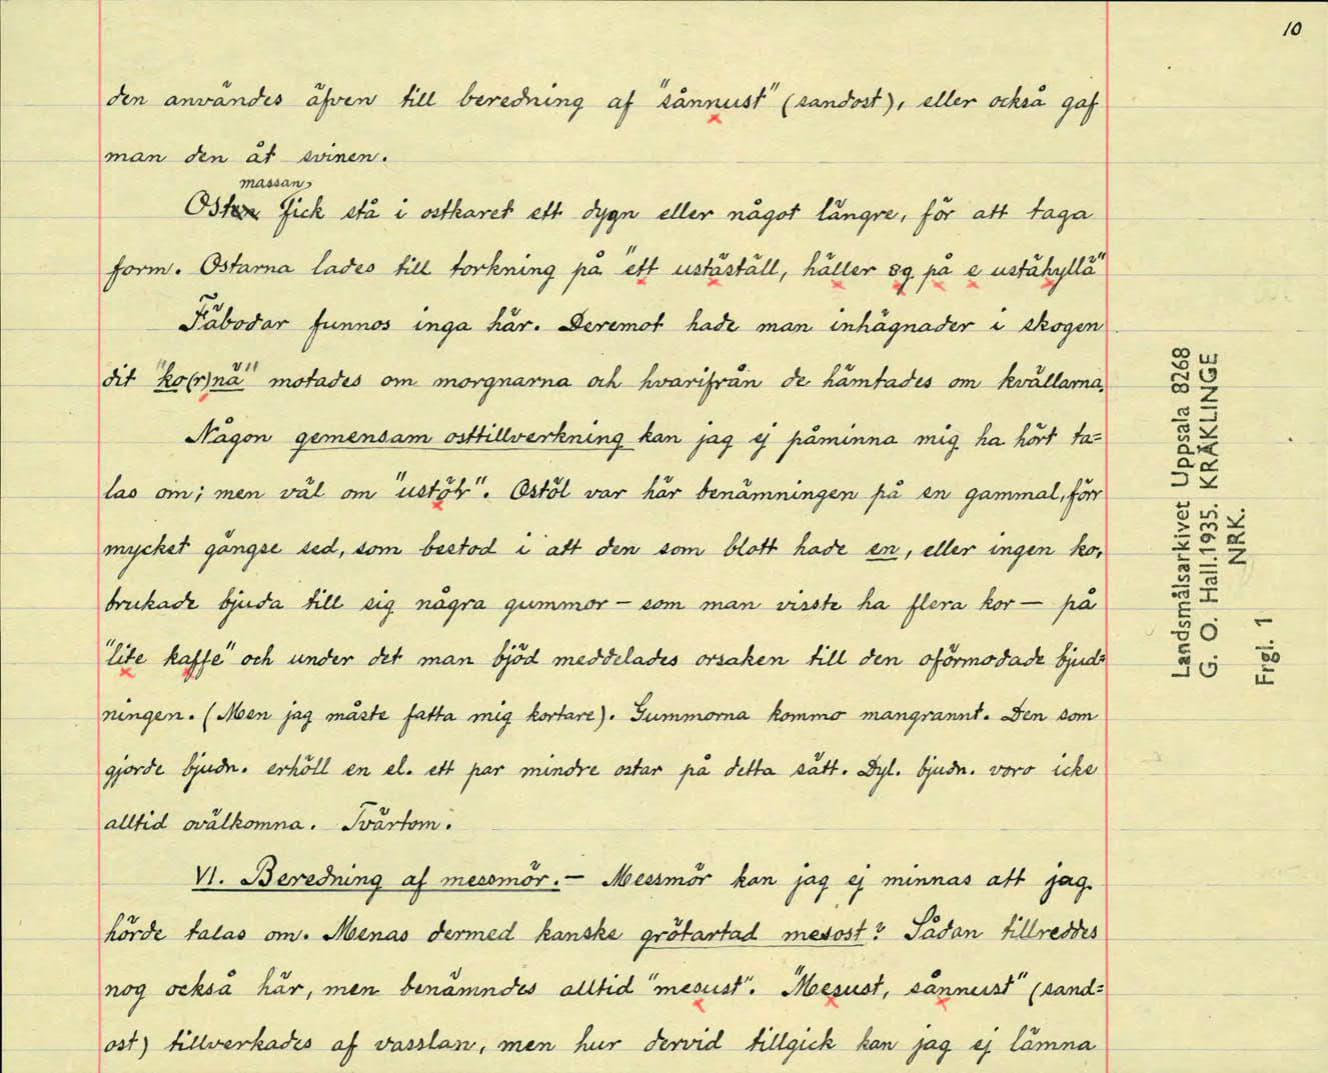 10
den användes äfven till beredning af "sånnust" (sandost), eller också gaf
man den åt svinen.
massan
Osten fick stå i ostkaret ett dygn eller något längre, för att taga
form. Ostarna lades till torkning på "ett ustäställ, häller og på e ustähyllä"
Fäbodar funnos inga här. Deremot hade man inhägnader i skogen
dit "ko(r)nä" motades om morgnarna och hvarifrån de hämtades om kvällarna.
Någon gemensam osttillverkning kan jag ej påminna mig ha hört ta=
las om; men väl om "ustöl". Ostöl var här benämningen på en gammal, förr
mycket gängse sed, som bestod i att den som blott hade en, eller ingen ko,
brukade bjuda till sig några gummor – som man visste ha flera kor — på
"lite kaffe" och under det man bjöd meddelades orsaken till den oförmodade bjud=
ningen. (Men jag måste fatta mig kortare). Gummorna kommo mangrannt. Den som
gjorde bjudn. erhöll en el. ett par mindre ostar på detta sätt. Dyl. bjudn. voro icke
alltid ovälkomna. Tvärtom.
VI. Beredning af messmör. – Messmör kan jag ej minnas att jag
hörde talas om. Menas dermed kanske grötartad mesost? Sådan tillreddes
nog också här, men benämndes alltid "mesust". "Mesust, sånnust" (sand=
ost) tillverkades af vasslan, men hur dervid tillgick kan jag ej lämna
Landsmålsarkivet Uppsala 8268
G. O. Hall. 1935. KRÄKLINGE
NRK.
Frgl. 1